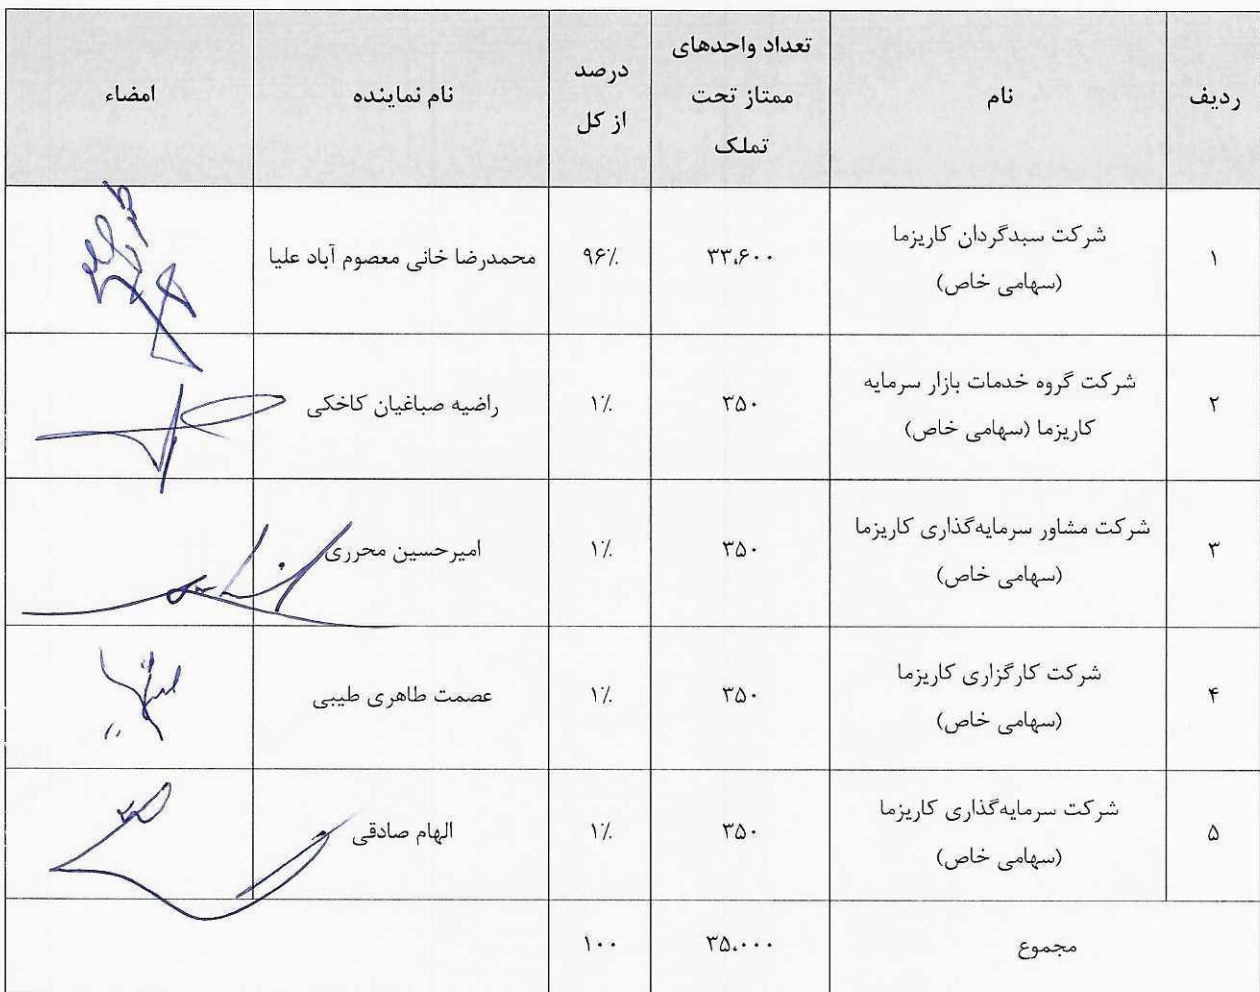 ردیف
نام
تعداد واحدهای
ممتاز تحت
تملک
درصد
از کل
نام نماینده
امضاء
۱
شرکت سبدگردان کاریزما
(سهامی خاص)
۳۳,۶۰۰
۹۶٪
محمدرضا خانی معصوم آباد علیا
۲
شرکت گروه خدمات بازار سرمایه
کاریزما (سهامی خاص)
۳۵۰
۱٪
راضیه صباغیان کاخکی
۳
شرکت مشاور سرمایه‌گذاری کاریزما
(سهامی خاص)
۳۵۰
۱٪
امیرحسین محرری
۴
شرکت کارگزاری کاریزما
(سهامی خاص)
۳۵۰
۱٪
عصمت طاهری طیبی
۵
شرکت سرمایه‌گذاری کاریزما
(سهامی خاص)
۳۵۰
۱٪
الهام صادقی
مجموع
۳۵,۰۰۰
۱۰۰